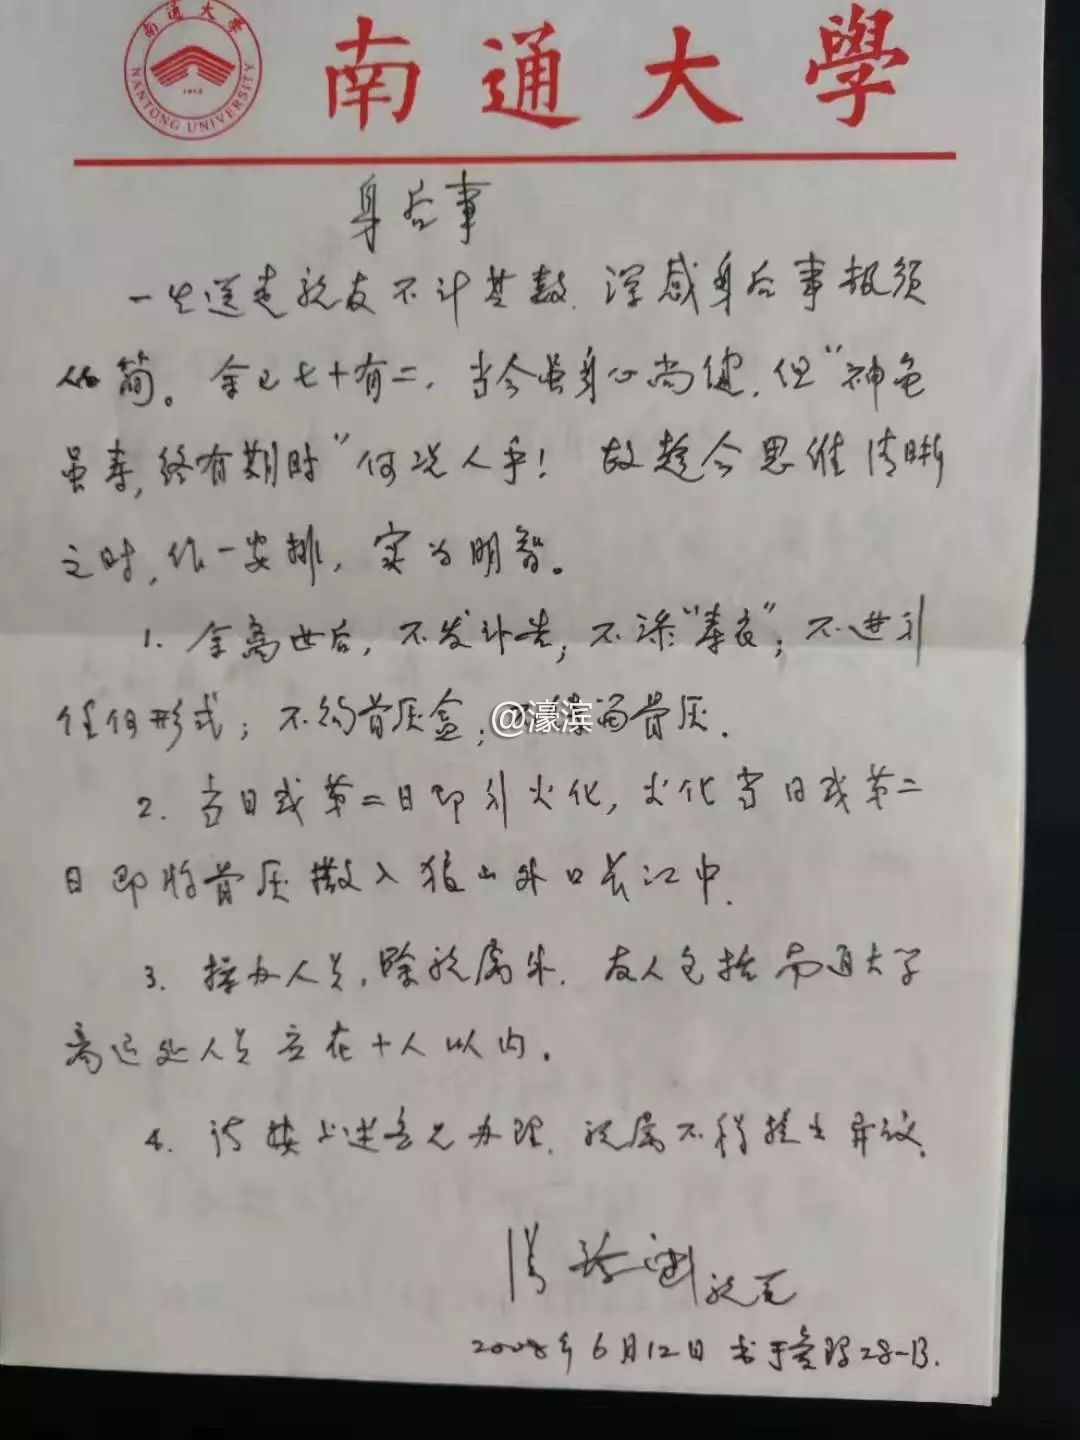 南通大學
NANTONG UNIVERSITY
南通大學
身后事
一生送走親友不计其数,深感身后事报须
从简。余已七十有二,当今虽身心尚健,但"神龟
虽寿,终有期时"何况人乎!故趁今思维清晰
之时,作一安排,实为明智。
1. 余离世后,不发讣告;不添"寿衣";不进行
任何形式;不的骨灰盒;骨灰.
@濠滨
2. 当日或第二日即行火化,火化当日或第二
日即将骨灰撒入狼山外口长江中.
3. 操办人员,除親属外,友人包括南通大学
离退处人员应在十人以内。
4. 请按上述各见办理,親属不得提出异议.
2008年6月12日 书于28-13.